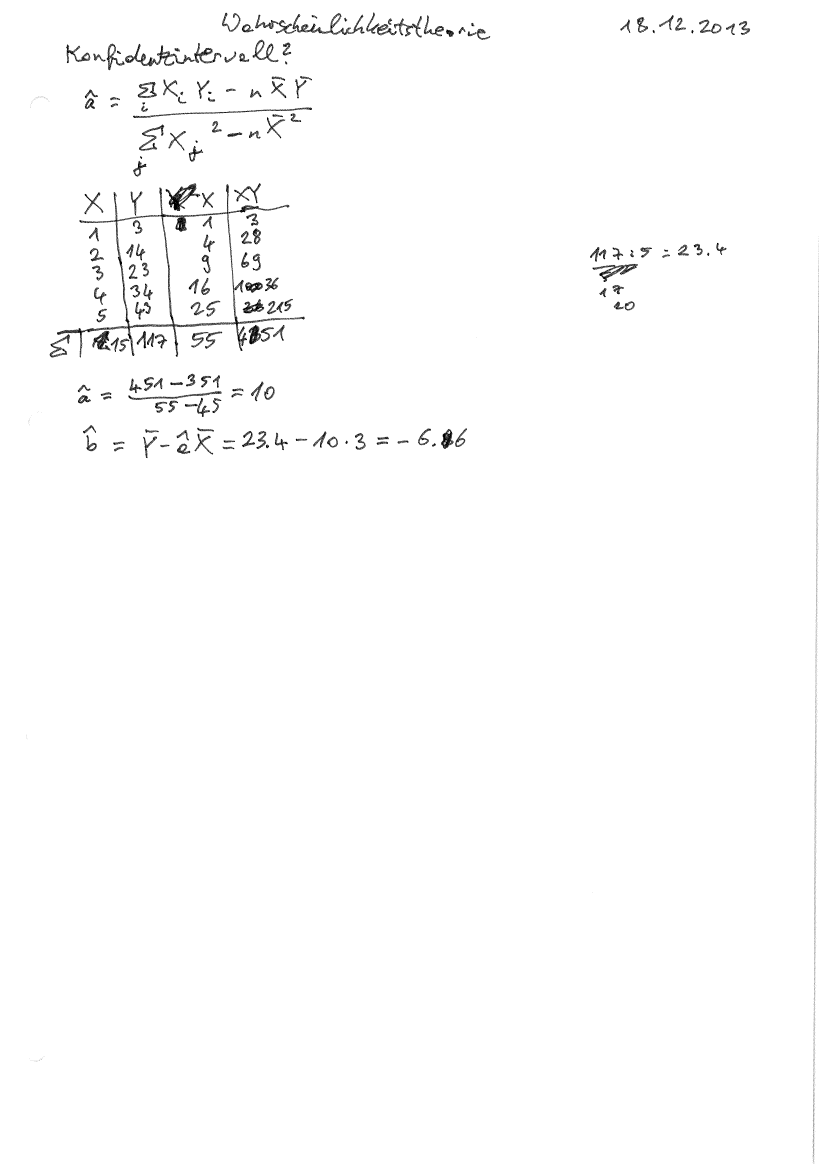 Wahrscheinlichkeitstheorie 18.12.2013
Konfidentzintervall?
â = (∑_i X_i Y_i - n X̄ Ȳ) / (∑_j X_j² - n X̄²)
X | Y | X | XY
1 | 3 | 1 | 3
2 | 14 | 4 | 28
3 | 23 | 9 | 69
4 | 34 | 16 | 136
5 | 43 | 25 | 215
∑ | 15 | 117 | 55 | 451
117:5 = 23.4
17
20
â = (451-351) / (55-45) = 10
b̂ = Ȳ - âX̄ = 23.4 - 10·3 = -6.6